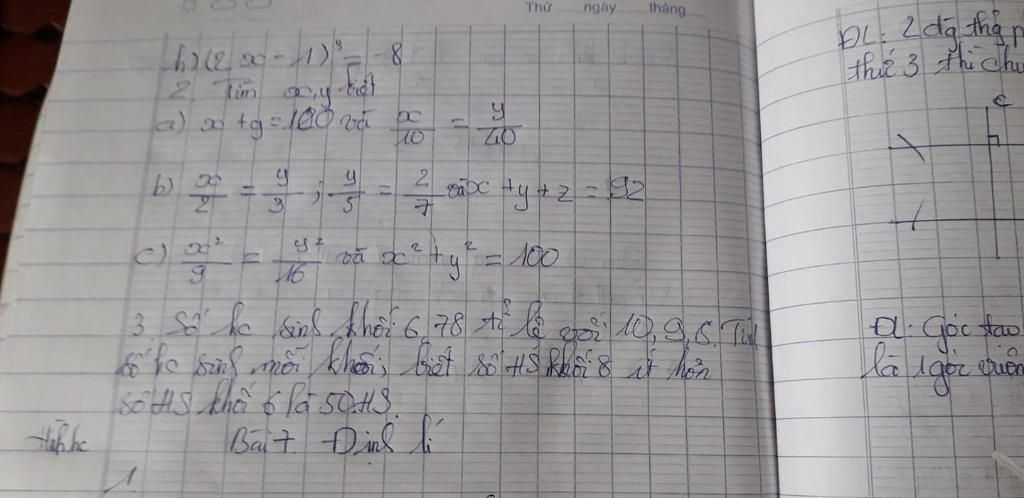 Thứ ngày tháng
h) (2x - 1)³ = -8
2. Tìm x, y biết
a) x + y = 100 và x/10 = y/40
b) x/2 = y/3 ; y/5 = z/7 và x + y + z = 92
c) x²/9 = y²/16 và x² + y² = 100
3. Số hc sinh khối 6, 7 8 tỉ lệ với 10, 9, 8. Tính
số hc sinh mỗi khối, biết số HS khối 8 ít hơn
số HS khối 6 là 50 HS.
Hình hc Bài 7. Định lí
1.
ĐL: 2 đg thg p
thứ 3 thì chú
c
Đl: Góc tạo
là 1 góc vuôn